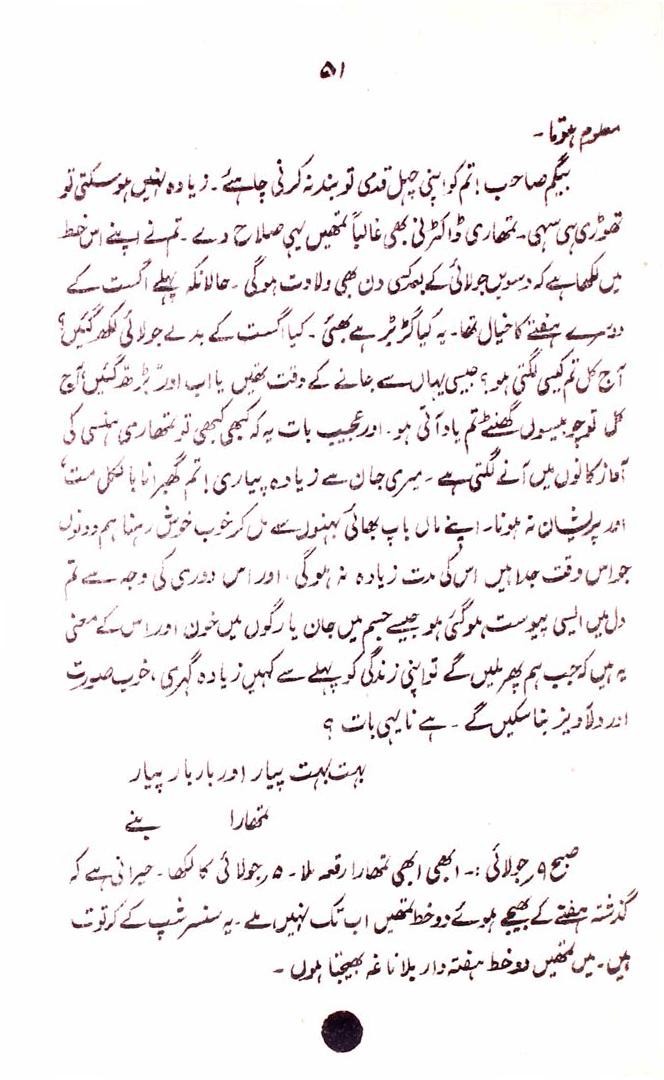 ۵۱
معلوم ہوتا ۔
بیگم صاحب ! تم کو اپنی چہل قدمی تو بند نہ کرنی چاہئے ۔ زیادہ نہیں ہو سکتی تو
تھوڑی ہی سہی ۔ تمھاری ڈاکٹرنی بھی غالباً تمھیں یہی صلاح دے ۔ تم نے اپنے اس خط
میں لکھا ہے کہ دسویں جولائی کے بعد کسی دن بھی ولادت ہوگی ۔ حالانکہ پہلے اگست کے
دوسرے ہفتے کا خیال تھا ۔ یہ کیا گڑبڑ ہے بھئی ۔ کیا اگست کے بدلے جولائی لکھ گئیں ؟
آج کل تم کیسی لگتی ہو ؟ جیسی یہاں سے جانے کے وقت تھیں یا اب اور بڑھ گئیں آج
کل تو چوبیسوں گھنٹے تم یاد آتی ہو ۔ اور عجیب بات یہ کہ کبھی کبھی تو تمھاری ہنسی کی
آواز کانوں میں آنے لگتی ہے ۔ میری جان سے زیادہ پیاری ! تم گھبرانا بالکل مت ،
اور پریشان نہ ہونا ۔ اپنے ماں باپ بھائی بہنوں سے مل کر خوب خوش رہنا ہم دونوں
جو اس وقت جدا ہیں اس کی مدت زیادہ نہ ہوگی ، اور اس دوری کی وجہ سے تم
دل میں ایسی پیوست ہو گئی ہو جیسے جسم میں جان یا رگوں میں خون اور اس کے معنی
یہ ہیں کہ جب ہم پھر ملیں گے تو اپنی زندگی کو پہلے سے کہیں زیادہ گہری ، خوب صورت
اور دلآویز بنا سکیں گے ۔ ہے نا یہی بات ؟
بہت بہت پیار اور بار بار پیار
تمھارا بنے
صبح ۹ر جولائی :۔ ابھی ابھی تمھارا رقعہ ملا ۔ ۵ر جولائی کا لکھا ۔ حیرانی ہے کہ
گذشتہ ہفتے کے بھیجے ہوئے دو خط تمھیں اب تک نہیں ملے ۔ یہ سنسر شپ کے کرتوت
ہیں ۔ میں تمھیں دو خط ہفتہ وار بلا ناغہ بھیجتا ہوں ۔